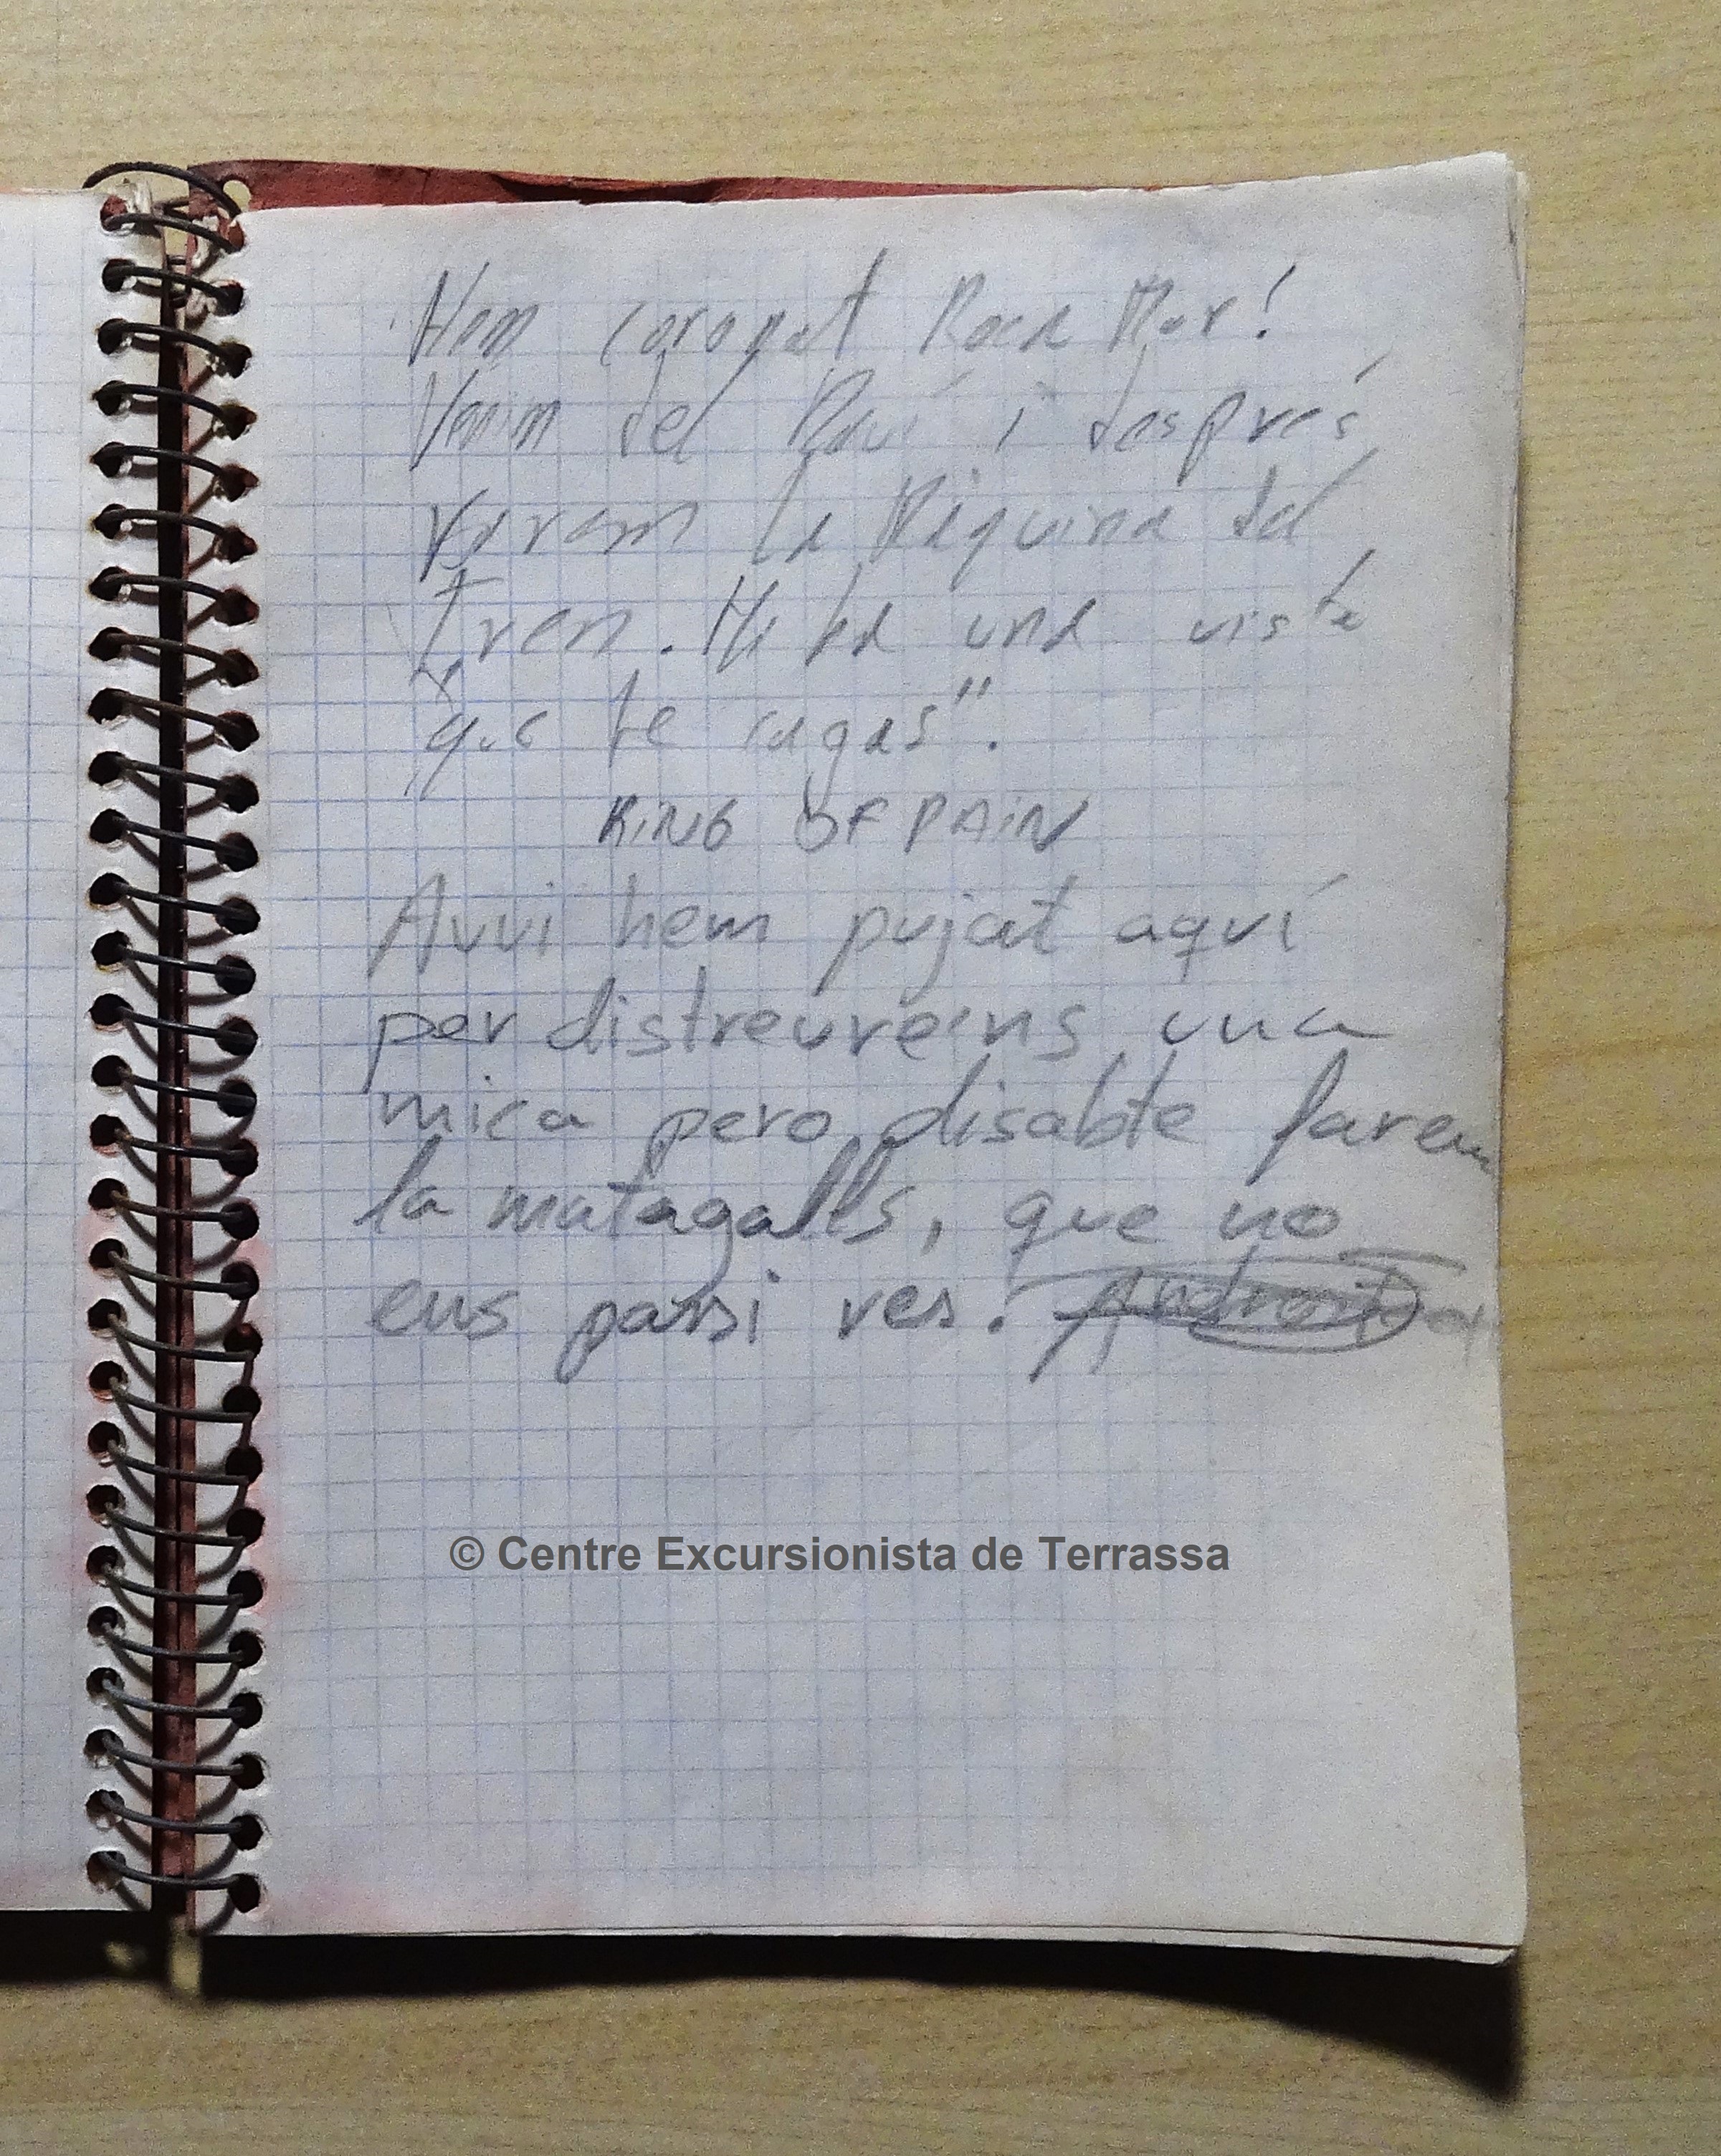 Hem coronat Roca Mur!
Venim del Paví i després
varem la Màquina del
tren. Hi ha una vista
"que te cagas".
KING OF PAIN
Avui hem pujat aquí
per distreure'ns una
mica pero disabte farem
la matagalls, que no
ens passi res.
© Centre Excursionista de Terrassa